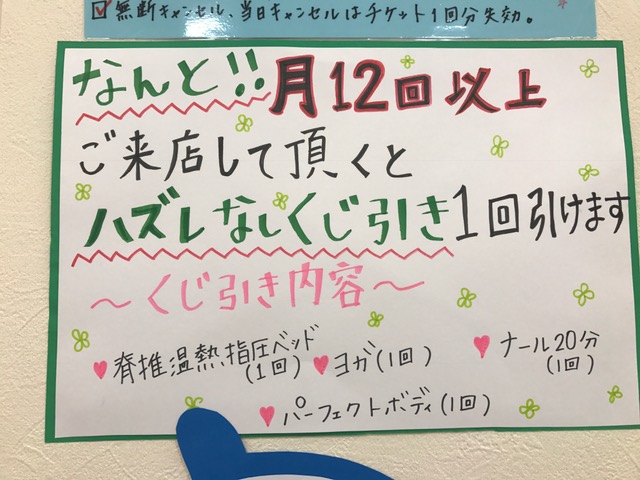 無断キャンセル、当日キャンセルはチケット1回分失効。
なんと!!月12回以上
ご来店して頂くと
ハズレなしくじ引き1回引けます
～くじ引き内容～
♥脊椎温熱指圧ベッド(1回) ♥ヨガ(1回) ♥ナール20分(1回)
♥パーフェクトボディ(1回)